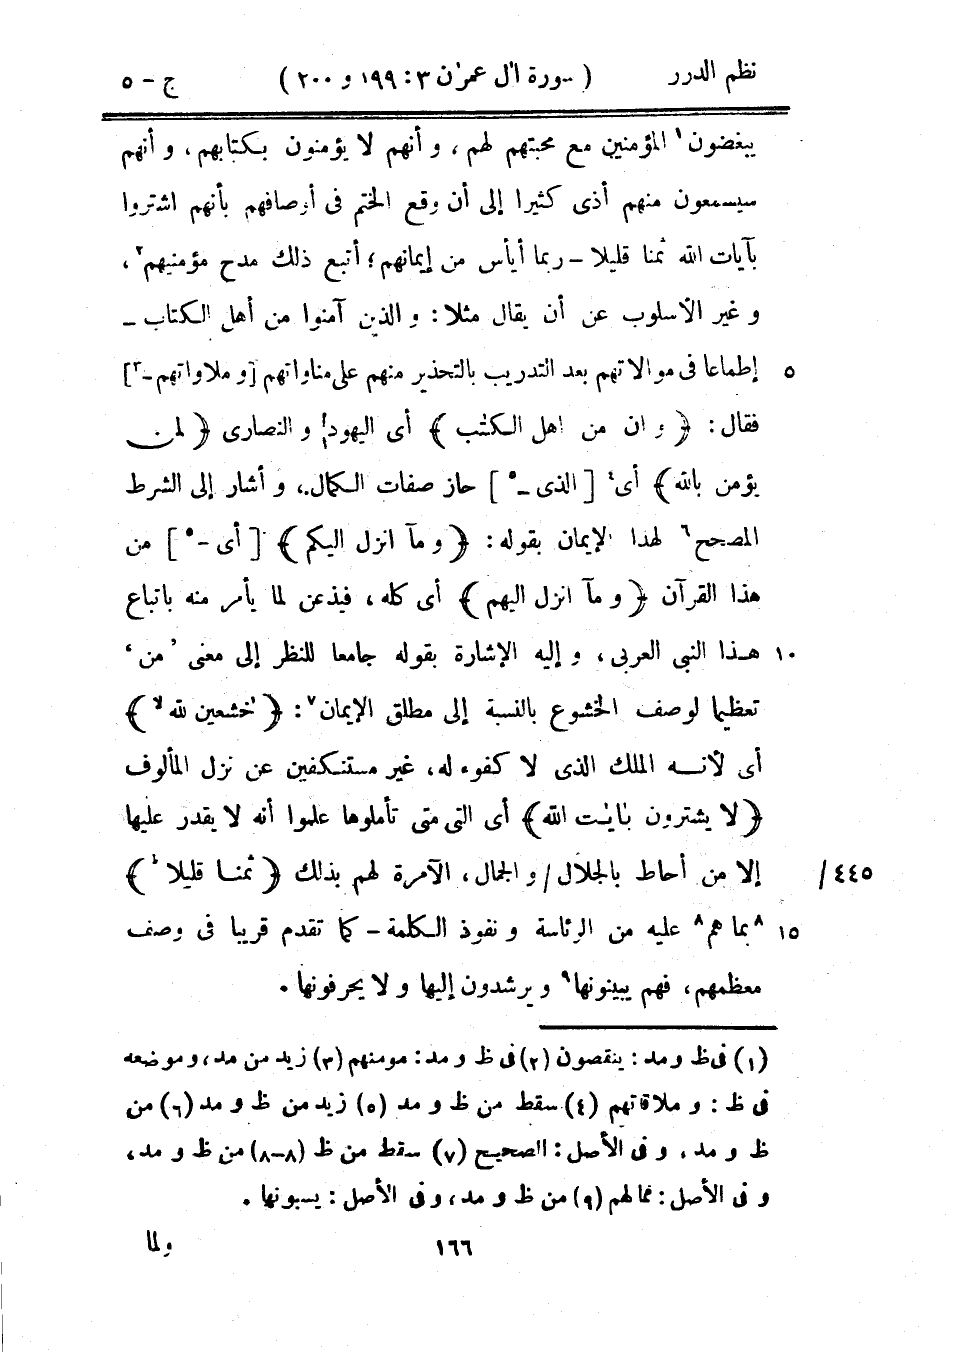 نظم الدرر ( سورة اٰل عمرٰن ٣ : ١٩٩ و ٢٠٠ ) ج – ٥
يبغضون١ المؤمنين مع محبتهم لهم ، و أنهم لا يؤمنون بكتابهم ، و أنهم
سيسمعون منهم أذى كثيرا إلى أن وقع الختم فى أوصافهم بأنهم اشتروا
بآيات الله ثمنا قليلا – ربما أيأس من إيمانهم ؛ أتبع ذلك مدح مؤمنيهم٢ ،
و غير الأسلوب عن أن يقال مثلا : و الذين آمنوا من أهل الكتاب –
٥ إطماعا فى موالاتهم بعد التدريب بالتحذير منهم على مناواتهم [ و ملاواتهم –٣ ]
فقال : ﴿ و ان من اهل الكتٰب ﴾ أى اليهود و النصارى ﴿ لمن
يؤمن بالله ﴾ أى٤ [ الذى –٥ ] حاز صفات الكمال ، و أشار إلى الشرط
المصحح٦ لهذا الإيمان بقوله : ﴿ و مآ انزل اليكم ﴾ [ أى –٥ ] من
هذا القرآن ﴿ و مآ انزل اليهم ﴾ أى كله ، فيذعن لما يأمر منه باتباع
١٠ هذا النبى العربى ، و إليه الإشارة بقوله جامعا للنظر إلى معنى ’ من ‘
تعظيما لوصف الخشوع بالنسبة إلى مطلق الإيمان٧ : ﴿ خٰشعين لله لا ﴾
أى لأنه الملك الذى لا كفوء له ، غير مستنكفين عن نزل المألوف
﴿ لا يشترون بٰايٰت الله ﴾ أى التى متى تأملوها علموا أنه لا يقدر عليها
٤٤٥ / إلا من أحاط بالجلال / و الجمال ، الآمرة لهم بذلك ﴿ ثمنا قليلا ط ﴾
١٥ ٨بما هم٨ عليه من الرئاسة و نفوذ الكلمة – كما تقدم قريبا فى وصف
معظمهم ، فهم يبينونها٩ و يرشدون إليها و لا يحرفونها .
(١) فى ظ و مد : ينقصون (٢) فى ظ و مد : مومنهم (٣) زيد من مد ، و موضعه
فى ظ : و ملاقاتهم (٤) سقط من ظ و مد (٥) زيد من ظ و مد (٦) من
ظ و مد ، و فى الأصل : الصحيح (٧) سقط من ظ (٨–٨) من ظ و مد ،
و فى الأصل : مما لهم (٩) من ظ و مد ، و فى الأصل : يسبونها .
١٦٦ ولما